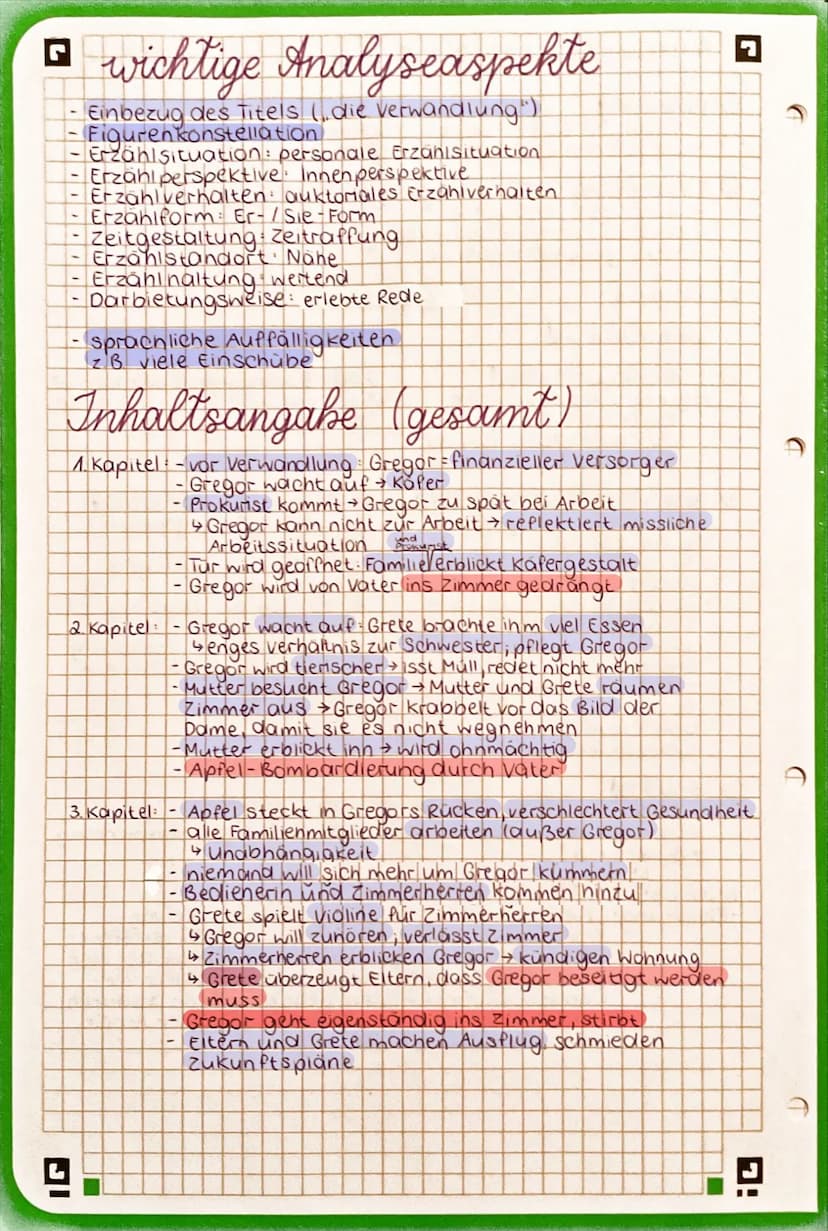 wichtige Analyseaspekte
- Einbezug des Titels („die Verwandlung")
- Figurenkonstellation
- Erzählsituation: personale Erzählsituation
- Erzählperspektive: Innenperspektive
- Erzählverhalten: auktoriales Erzählverhalten
- Erzählform: Er-/Sie-Form
- Zeitgestaltung: Zeitraffung
- Erzählstandort: Nähe
- Erzählhaltung: wertend
- Darbietungsweise: erlebte Rede
- sprachliche Auffälligkeiten
z.B. viele Einschübe
Inhaltsangabe (gesamt)
1. Kapitel: - vor Verwandlung: Gregor = finanzieller Versorger
- Gregor wacht auf → Käfer
- Prokurist kommt → Gregor zu spät bei Arbeit
↳ Gregor kann nicht zur Arbeit → reflektiert missliche
Arbeitssituation
- Tür wird geöffnet: Familie und Prokurist erblickt Käfergestalt
- Gregor wird von Vater ins Zimmer gedrängt
2. Kapitel: - Gregor wacht auf: Grete brachte ihm viel Essen
↳ enges Verhältnis zur Schwester; pflegt Gregor
- Gregor wird tierischer → isst Müll, redet nicht mehr
- Mutter besucht Gregor → Mutter und Grete räumen
Zimmer aus → Gregor krabbelt vor das Bild der
Dame, damit sie es nicht wegnehmen
- Mutter erblickt ihn → wird ohnmächtig
- Apfel-Bombardierung durch Vater
3. Kapitel: - Apfel steckt in Gregors Rücken, verschlechtert Gesundheit
- alle Familienmitglieder arbeiten (außer Gregor)
↳ Unabhängigkeit
- niemand will sich mehr um Gregor kümmern
- Bedienerin und Zimmerherren kommen hinzu
- Grete spielt Violine für Zimmerherren
↳ Gregor will zuhören; verlässt Zimmer
↳ Zimmerherren erblicken Gregor → kündigen Wohnung
↳ Grete überzeugt Eltern, dass Gregor beseitigt werden
muss
- Gregor geht eigenständig ins Zimmer, stirbt
- Eltern und Grete machen Ausflug, schmieden
Zukunftspläne